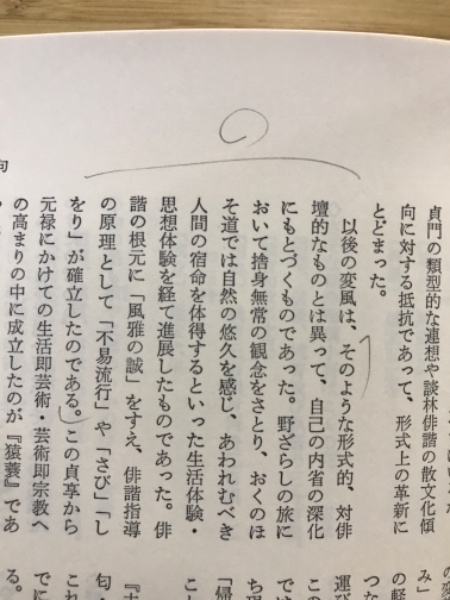 貞門の類型的な連想や談林俳諧の散文化傾
向に対する抵抗であって、形式上の革新に
とどまった。
以後の変風は、そのような形式的、対俳
壇的なものとは異って、自己の内省の深化
にもとづくものであった。野ざらしの旅に
おいて捨身無常の観念をさとり、おくのほ
そ道では自然の悠久を感じ、あわれむべき
人間の宿命を体得するといった生活体験・
思想体験を経て進展したものであった。俳
諧の根元に「風雅の誠」をすえ、俳諧指導
の原理として「不易流行」や「さび」「し
をり」が確立したのである。この貞享から
元禄にかけての生活即芸術・芸術即宗教へ
の高まりの中に成立したのが『猿蓑』であ
る。